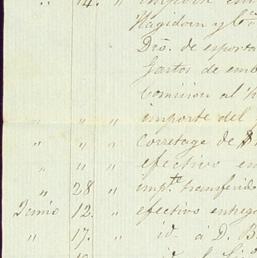 " 14. " importe en
Hagidorn y Ca
Dros. de esporta
Gastos de emb
comision al
" " " importe del
" " " corretage de $
" " " efectivo en
" 28 " impte. transferido
Junio 12. " efectivo entreg
" 17. " id. á D. B